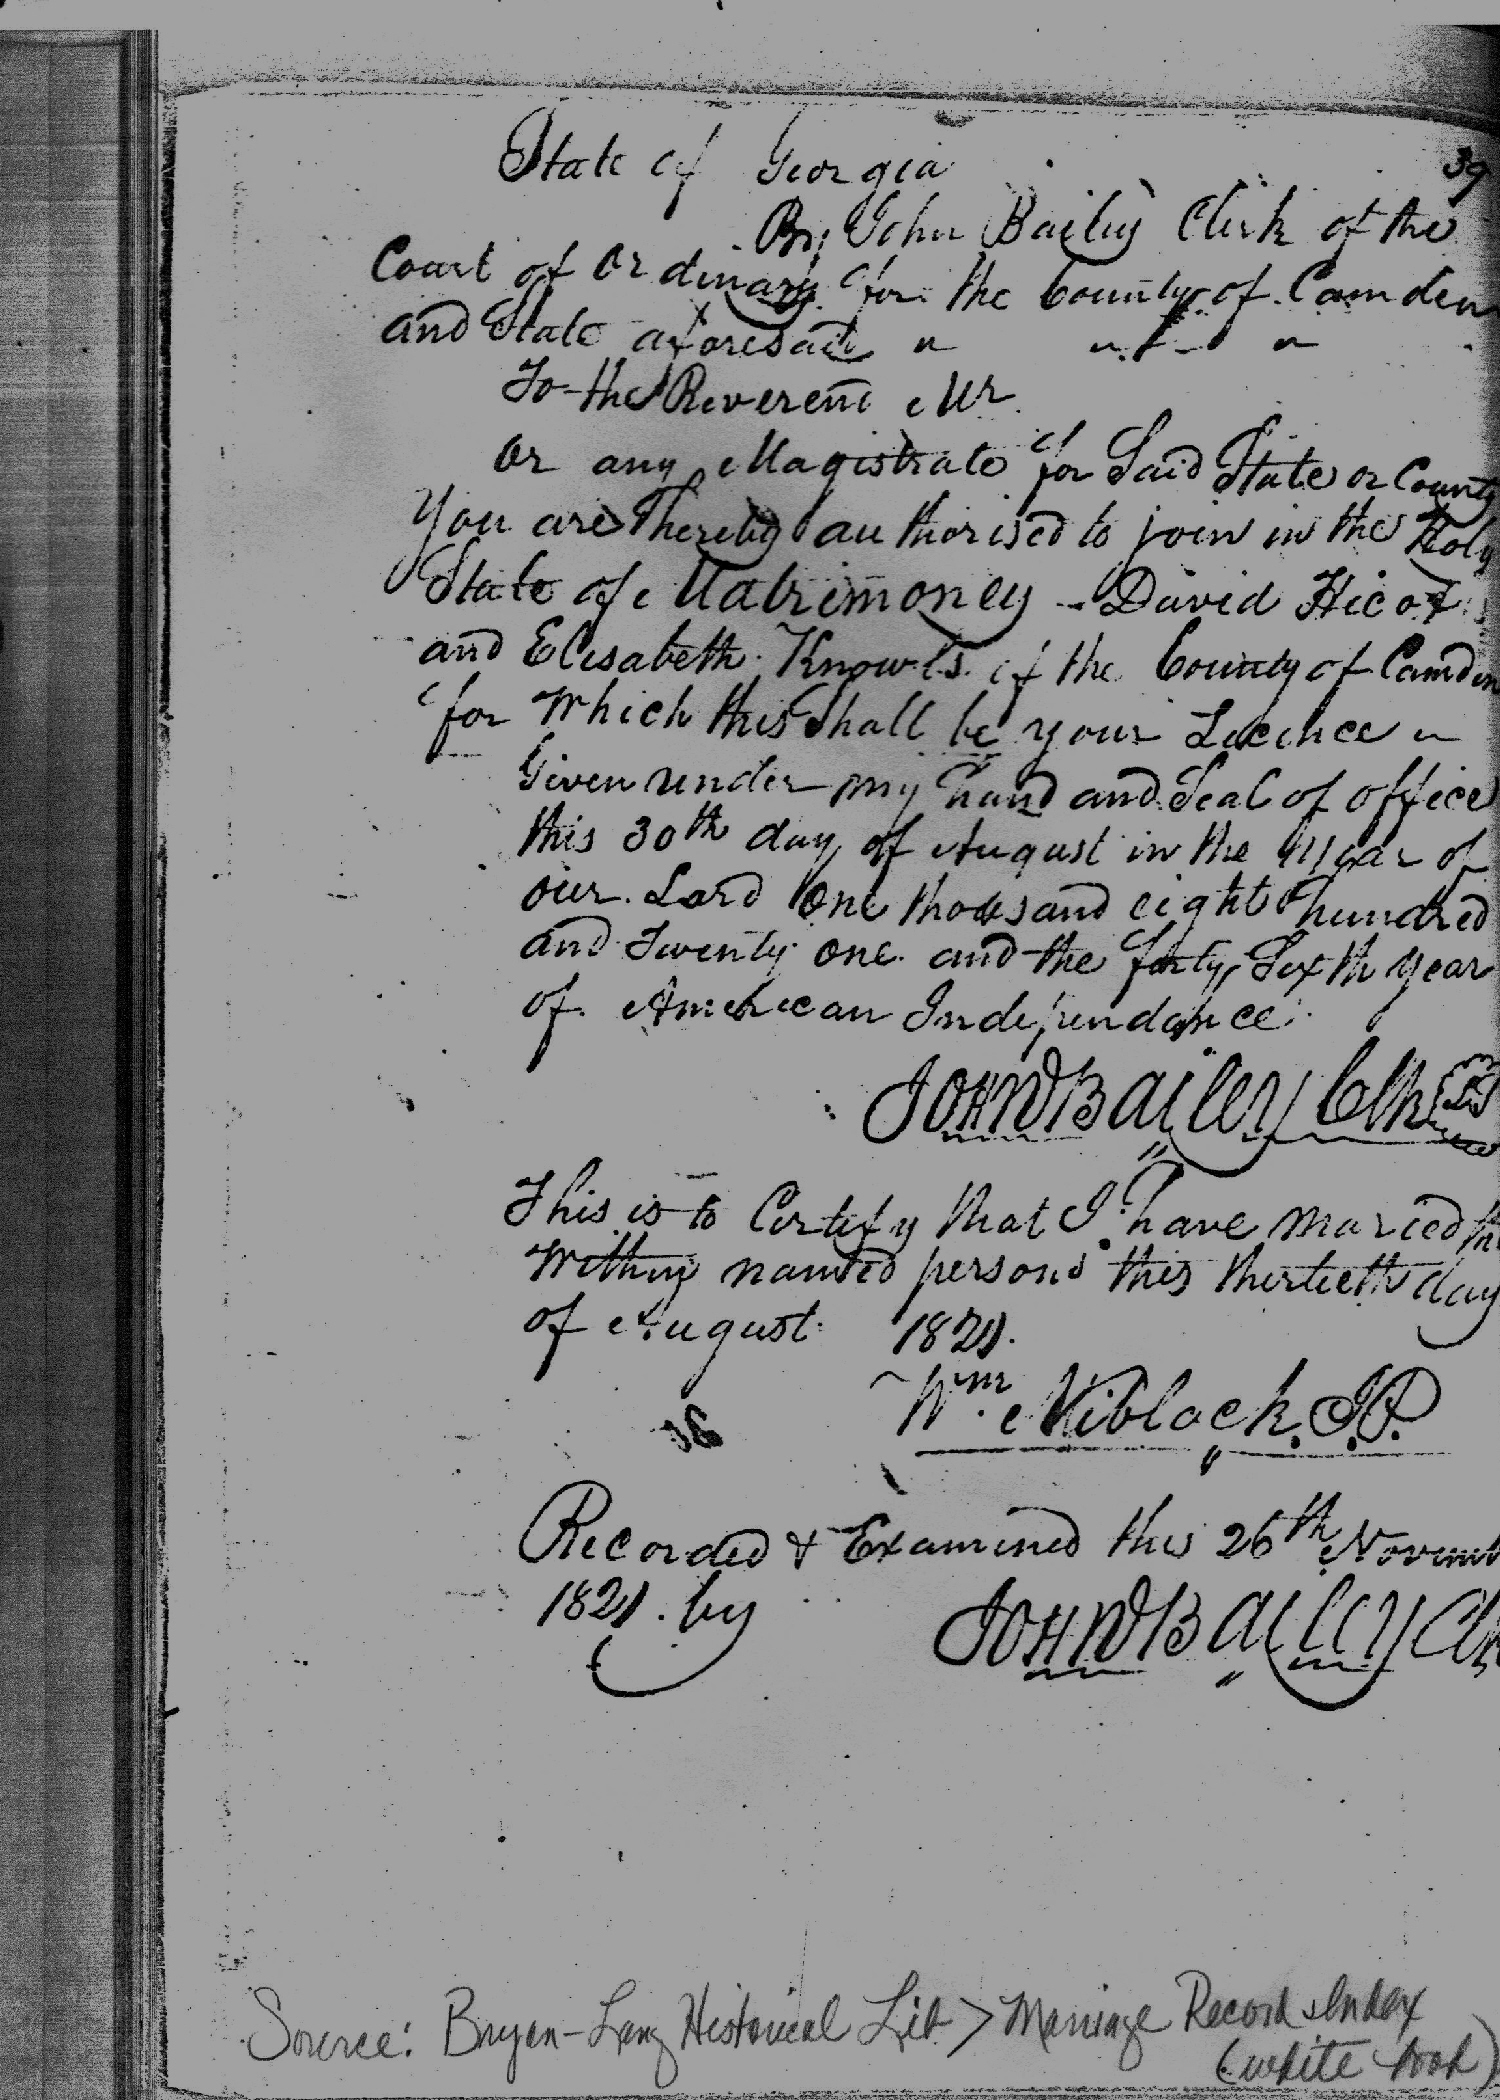 39
State of Georgia
By John Bailey Clerk of the
Court of Ordinary for the County of Camden
and State aforesaid
To the Reverend Mr
or any Magistrate for Said State or County
You are Thereby authorised to join in the Holy
State of Matrimoney - David Hicox
and Elisabeth Knowls of the County of Camden
for which this Shall be your Licence
Given under my hand and Seal of office
this 30th day of August in the Year of
our Lord One thousand eight hundred
and Twenty one and the forty Sixth year
of American Independance
JOHN BAiley Clk
This is to Certify that I have maried the
within named persons this thirtieth day
of August 1821.
Wm Niblack. J.P.
Recorded & Examined this 26th Novemb
1821. by JOHN BAiley Clk
Source: Bryan-Lang Historical Lib > Marriage Record Index
(white book)